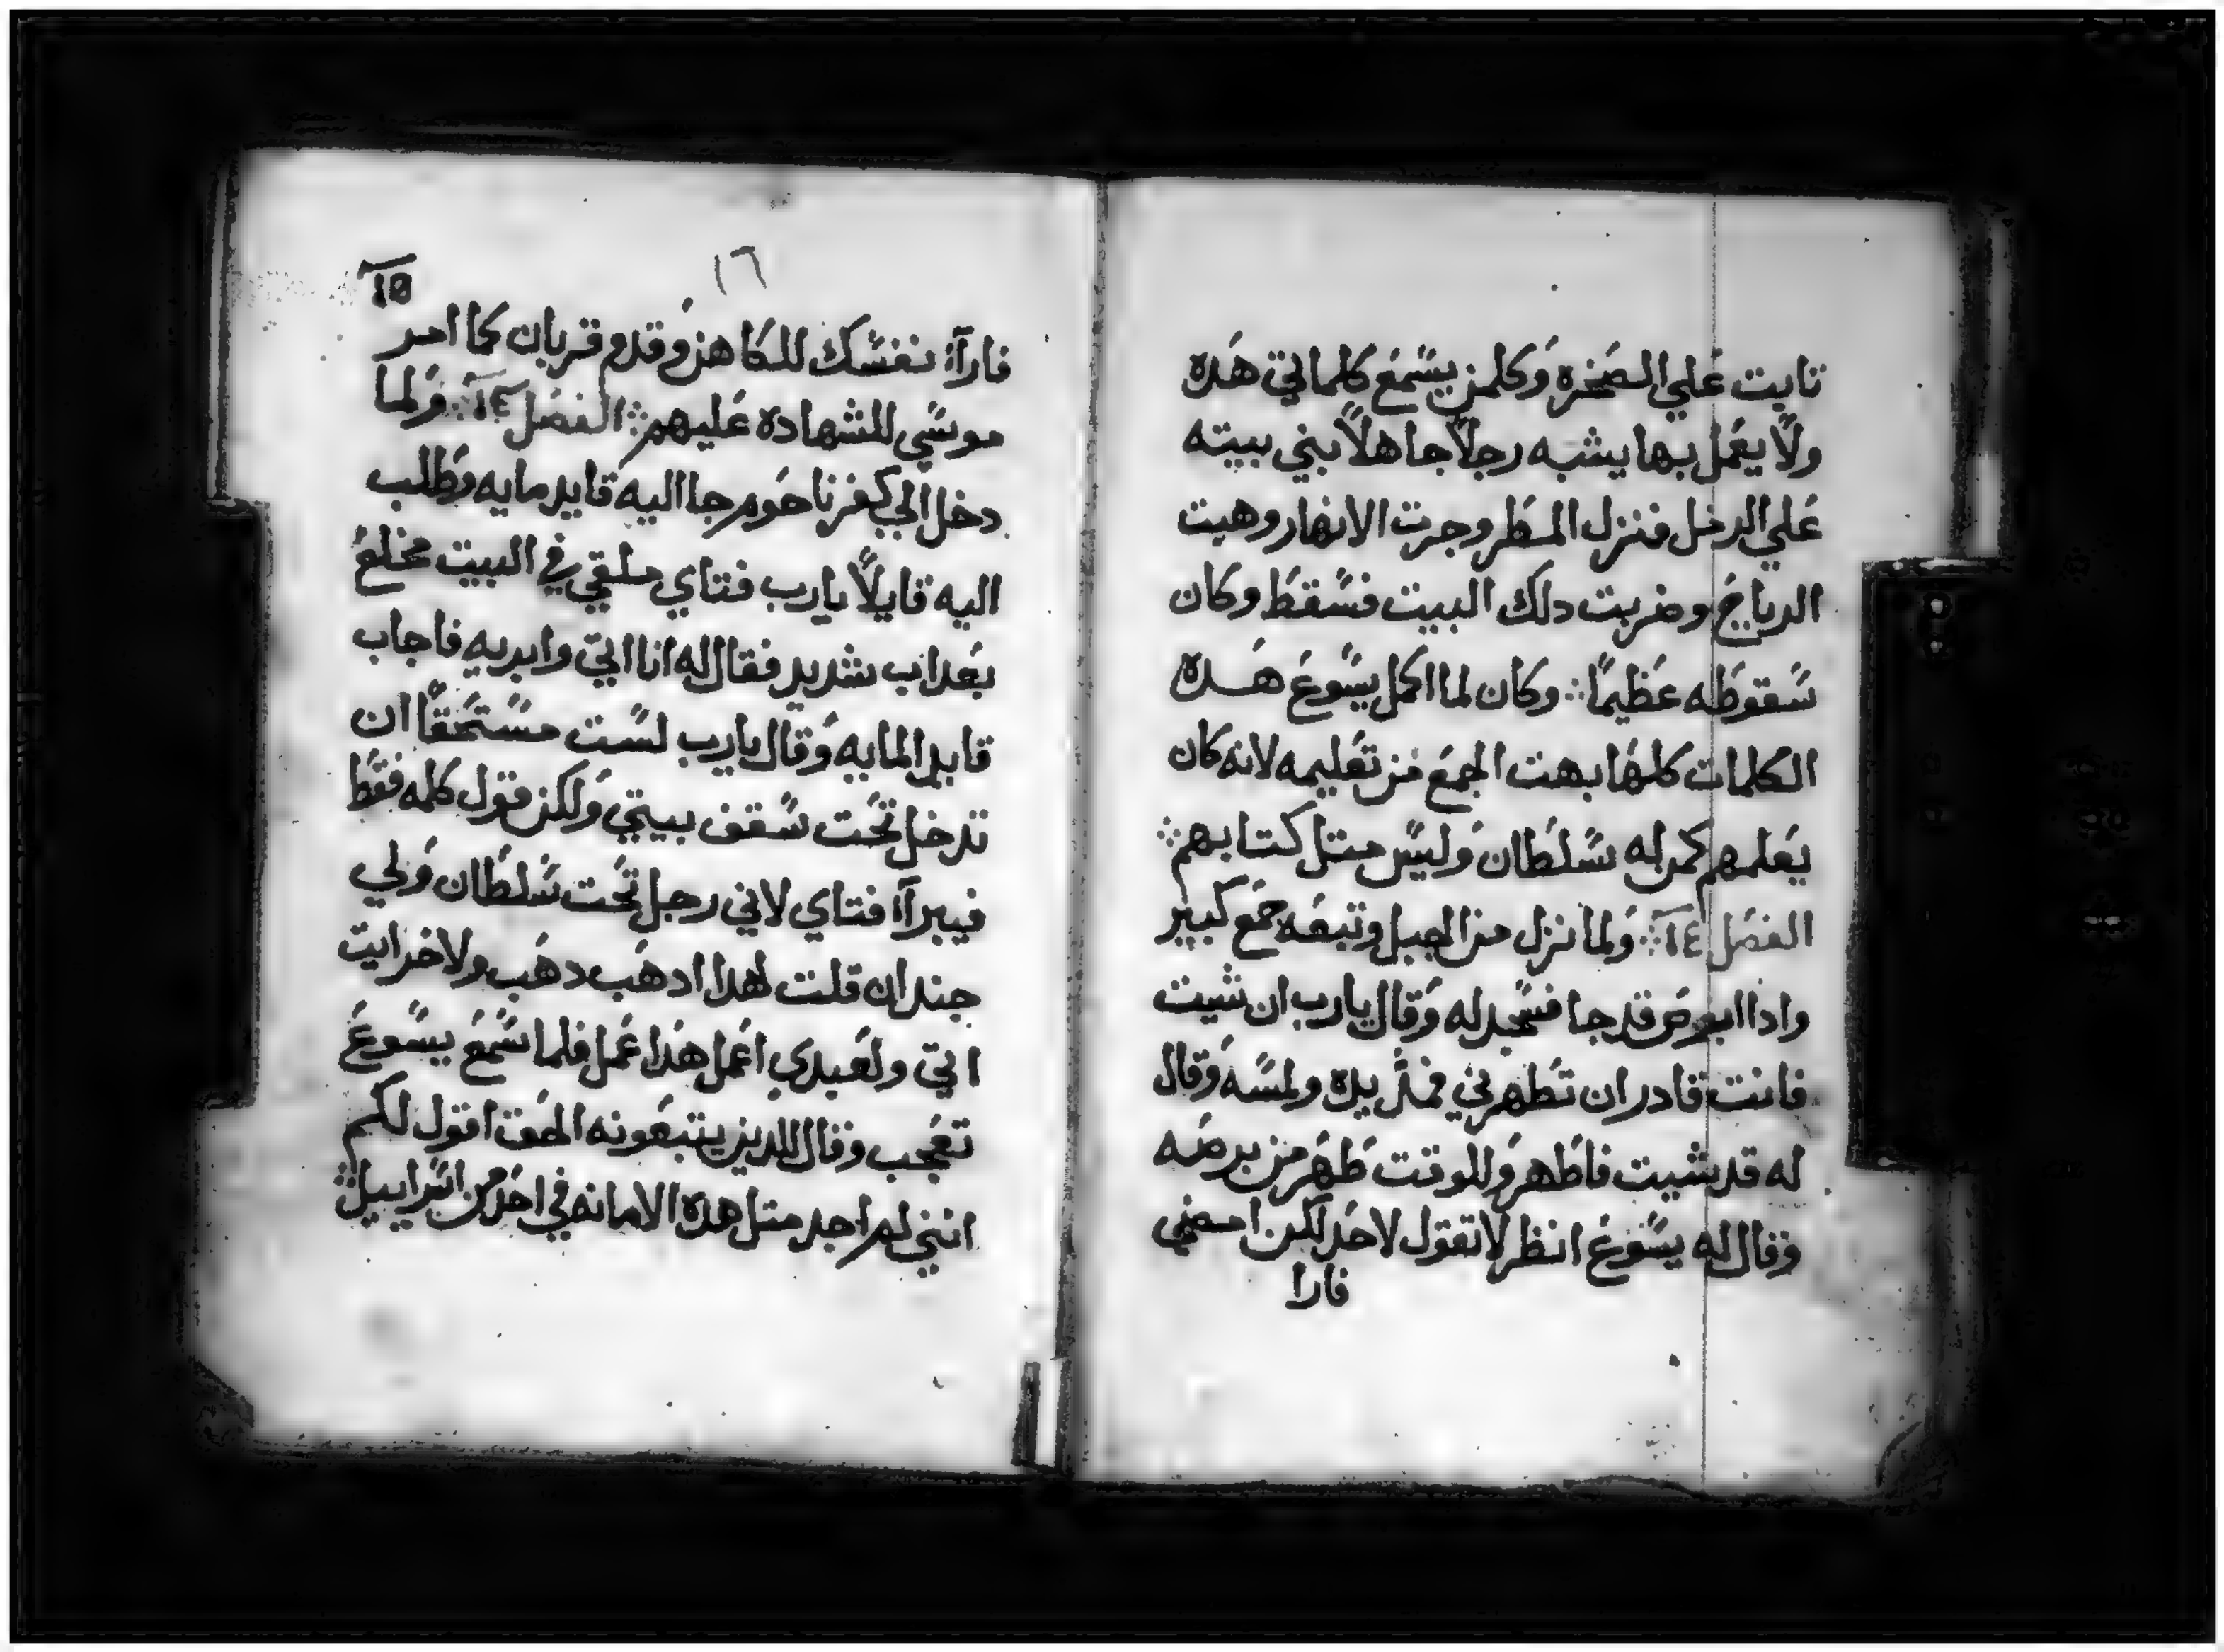 تابت علي الصخره وكلمن يسمع كلماتي هده
ولا يعمل بها يشبه رجلاً جاهلاً بني بيته
علي الرمل فنزل المطر وجرت الانهار وهبت
الرياح وضربت دلك البيت فسقط وكان
سقوطه عظيمًا ⁘ وكان لما اكمل يسوع هده
الكلمات كلها بهت الجمع من تعليمه لانه كان
يعلمهم كمن له سلطان وليس متل كتابهم ⁘
الفصل ١٤ ⁘ ولما نزل من الجبل وتبعه جمع كبير
وادا ابرص قد جا فسجد له وقال يارب ان شيت
فانت قادر ان تطهرني فمد يده ولمسه وقال
له قد شيت فاطهر وللوقت طهر من برصه
وقال له يسوع انظر لا تقول لاحد لكن امضي
فارا
١٦
فارآء نفسك للكاهن وقدم قربان كما امر
موسي للشهاده عليهم ⁘ الفصل ⁘ ولما
دخل الي كفرناحوم جا اليه قايد مايه وطلب
اليه قايلاً يارب فتاي ملقي في البيت مخلع
بعداب شديد فقال له انا اتي وابريه فاجاب
قايد المايه وقال يارب لست مستحقاً ان
تدخل تحت سقف بيتي ولكن قول كلمه فقط
فيبرآء فتاي لاني رجل تحت سلطان ولي
جند ان قلت لهدا ادهب دهب ولاخر ايت
اتي ولعبدي اعمل هدا عمل فلما سمع يسوع
تعجب وقال للدين يتبعونه الحق اقول لكم
انني لم اجد متل هده الامانه في احد من اسراييل ⁘